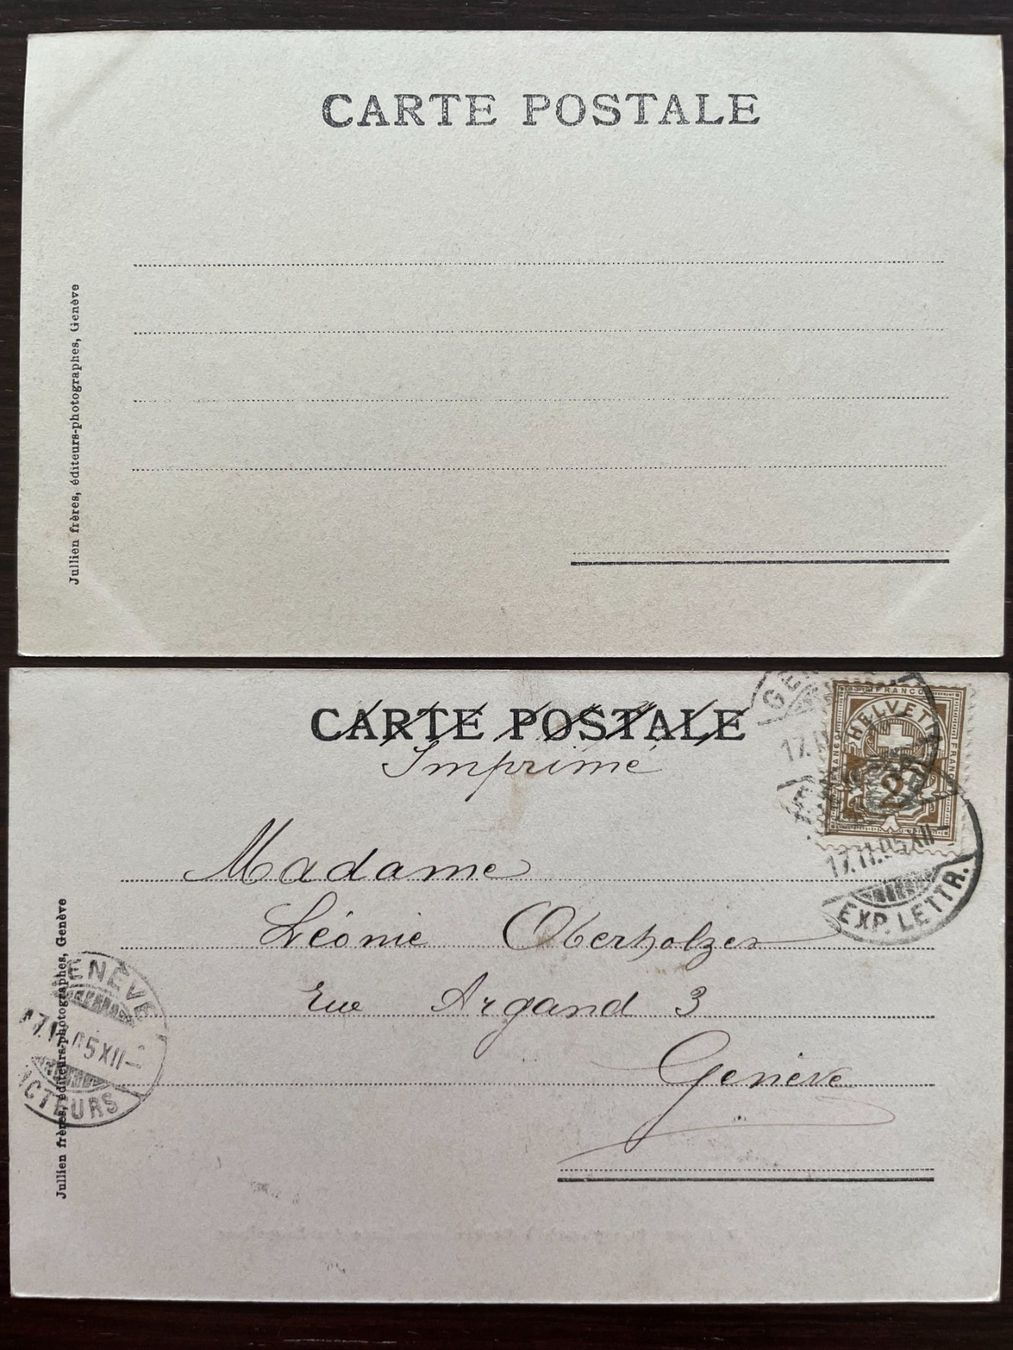 CARTE POSTALE
Jullien frères, éditeurs-photographes, Genève
CARTE POSTALE
Imprimé
FRANCO
HELVETIA
FRANCO
2
17.11.05 XII–
EXP. LETTR.
Madame
Léonie Oberholzer
rue Argand 3
Genève
GENÈVE
17.11.05 XII–
FACTEURS
Jullien frères, éditeurs-photographes, Genève